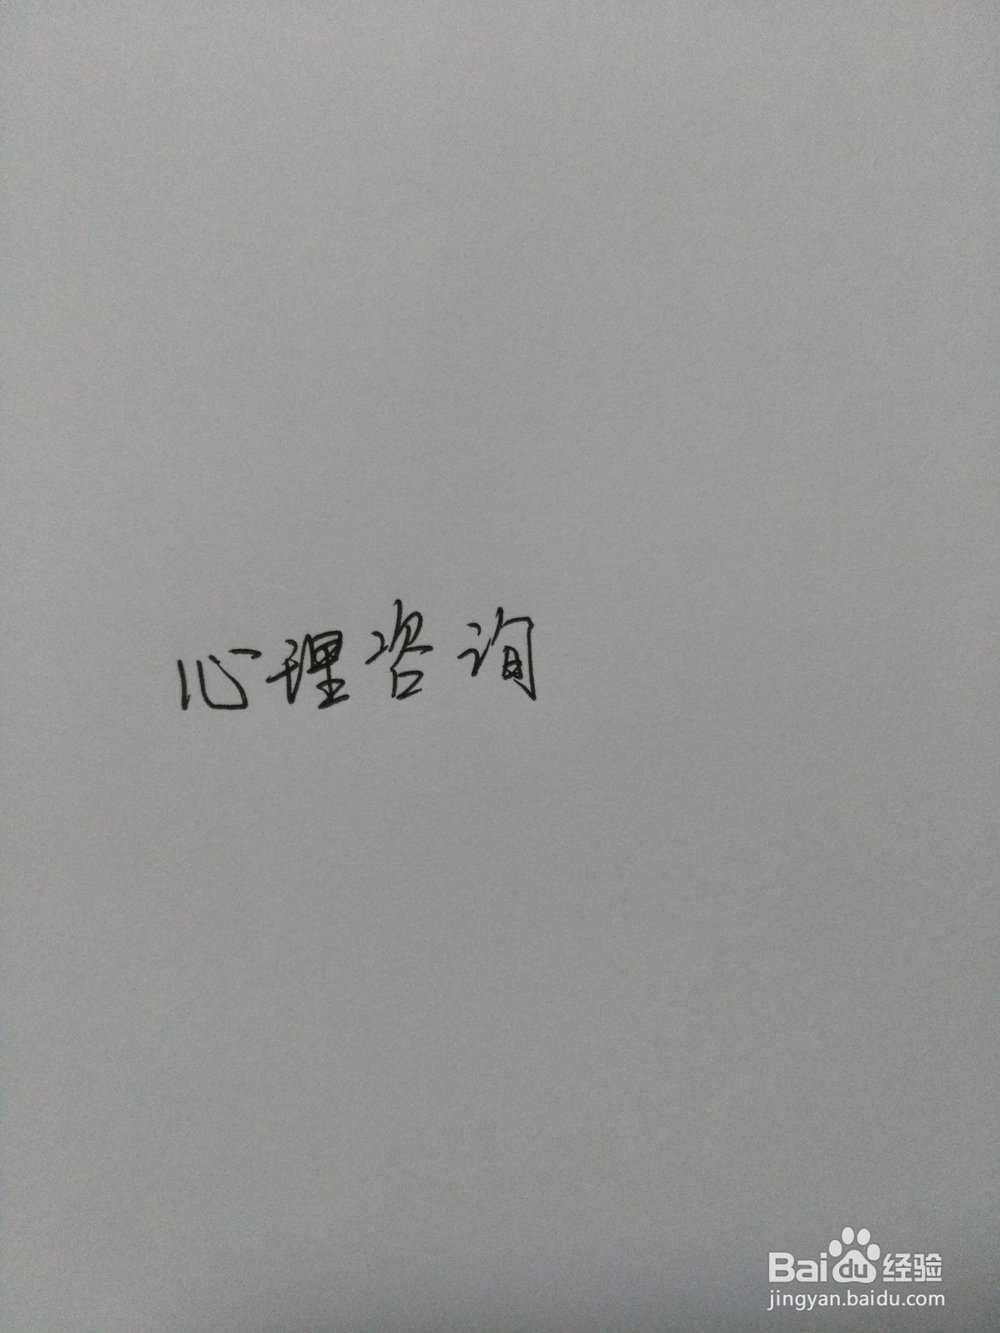 心理咨询
Baidu经验
jingyan.baidu.com